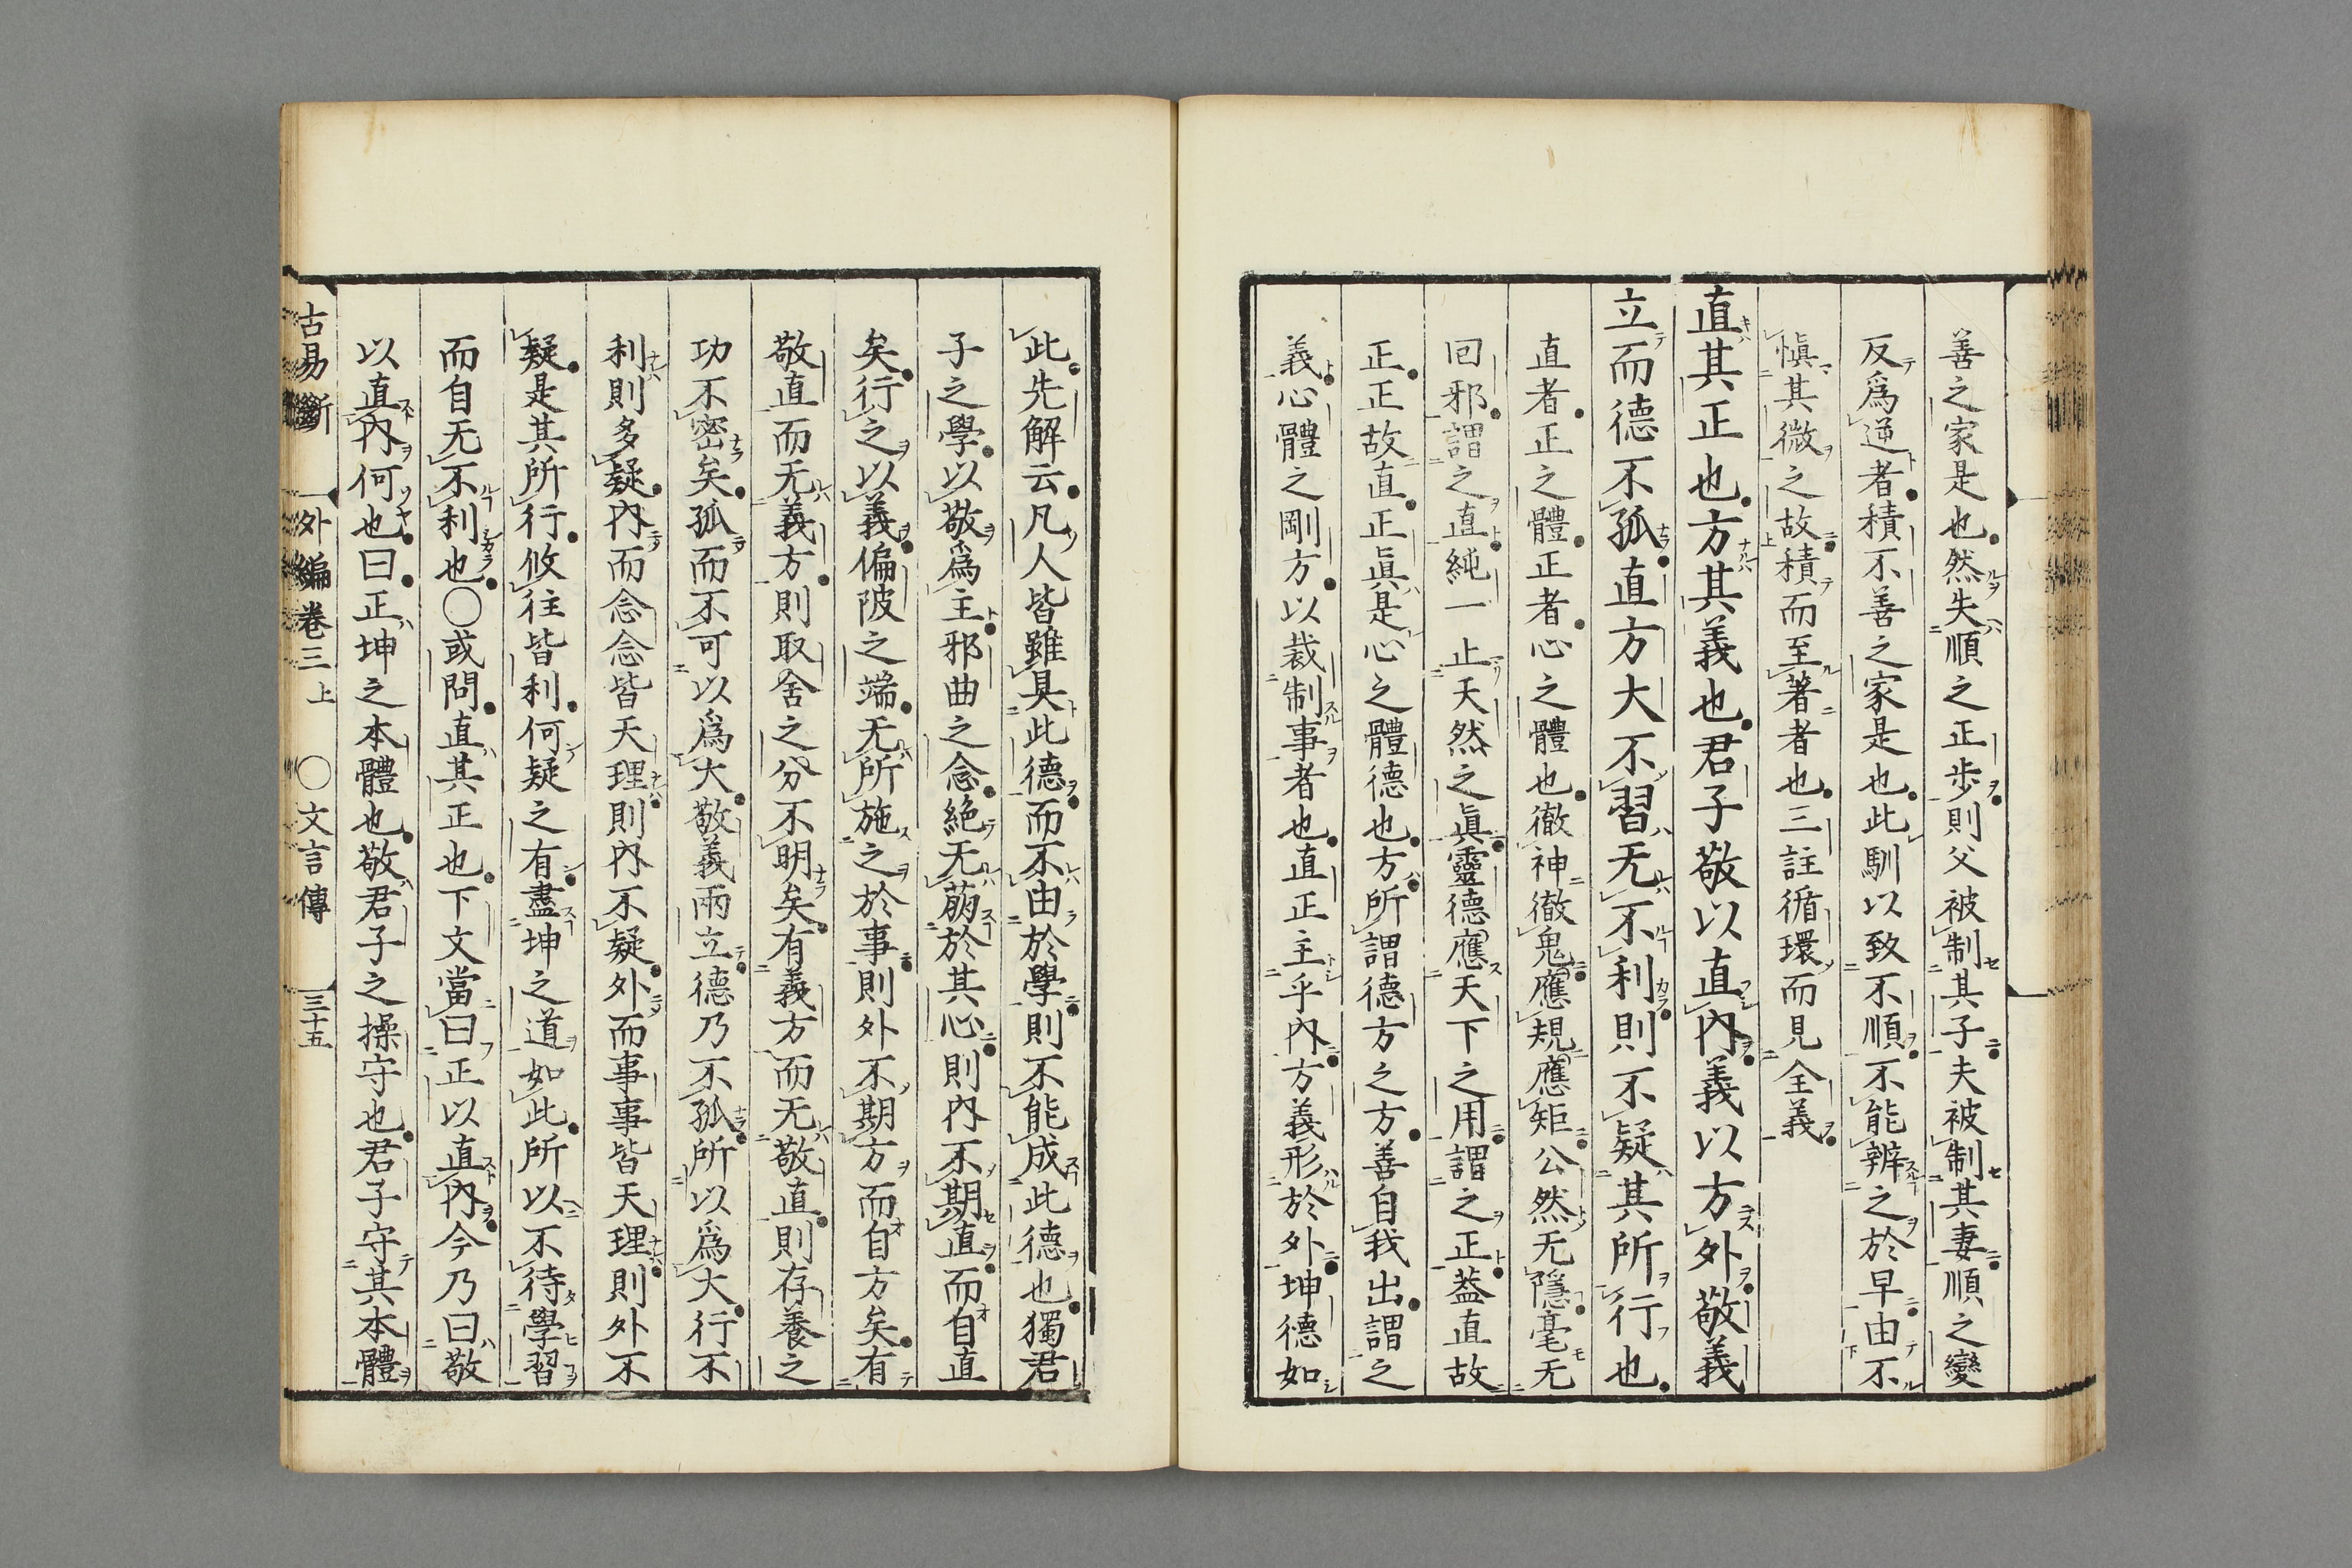 善之家是也然失順之正步則父被制其子夫被制其妻順之變
反爲逆者積不善之家是也此馴以致不順不能辨之於早由不
愼其微之故積而至著者也三註循環而見全義
直其正也方其義也君子敬以直內義以方外敬義
立而德不孤直方大不習无不利則不疑其所行也
直者正之體正者心之體也徹神徹鬼應規應矩公然无隱毫无
回邪謂之直純一止天然之眞靈德應天下之用謂之正蓋直故
正正故直正眞是心之體德也方所謂德方之方善自我出謂之
義心體之剛方以裁制事者也直正主乎內方義形於外坤德如
此先解云凡人皆雖具此德而不由於學則不能成此德也獨君
子之學以敬爲主邪曲之念絕无萠於其心則內不期直而自直
矣行之以義偏陂之端无所施之於事則外不期方而自方矣有
敬直而无義方則取舍之分不明矣有義方而无敬直則存養之
功不密矣孤而不可以爲大敬義兩立德乃不孤所以爲大行不
利則多疑內而念念皆天理則內不疑外而事事皆天理則外不
疑是其所行攸往皆利何疑之有盡坤之道如此所以不待學習
而自无不利也〇或問直其正也下文當曰正以直內今乃曰敬
以直內何也曰正坤之本體也敬君子之操守也君子守其本體
古易斷 外編卷三上 〇文言傳 三十五